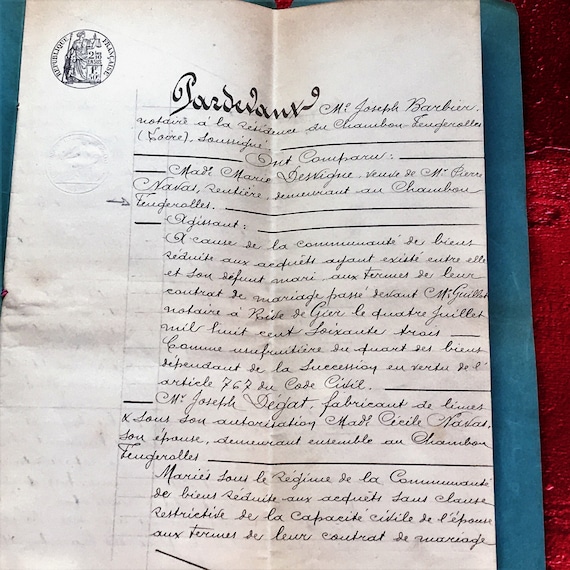 RÉPUBLIQUE FRANÇAISE
Pardevant Me. Joseph Barbier,
notaire à la résidence du Chambon-Feugerolles
(Loire), soussigné.
Ont Comparu:
Made. Marie Dessigne, veuve de Mr. Pierre
Navas, rentière, demeurant au Chambon-
Feugerolles.
Agissant:
A cause de la communauté de biens
réduite aux acquêts ayant existé entre elle
et son défunt mari, aux termes de leur
contrat de mariage passé devant Me. Guillot
notaire à Rive de Gier le quatre juillet
mil huit cent soixante trois
Comme usufruitière du quart des biens
dépendant de la succession en vertu de l'
article 767 du Code Civil.
Mr. Joseph Degat, fabricant de limes
& sous son autorisation Made. Cécile Navas,
son épouse, demeurant ensemble au Chambon
Feugerolles
Mariés sous le régime de la Communauté
de biens réduite aux acquêts sans clause
restrictive de la capacité civile de l'épouse
aux termes de leur contrat de mariage